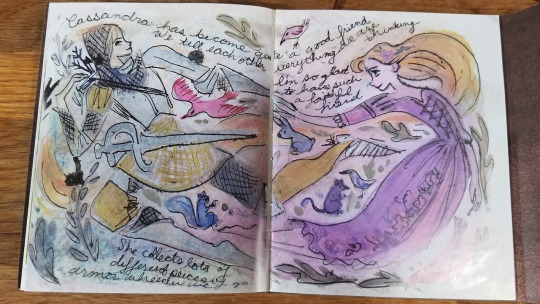 Cassandra has become quite a good friend.
We tell each other everything we are thinking
I'm so glad
to have such
a faithful
friend
She collects lots of
different pieces of
armor